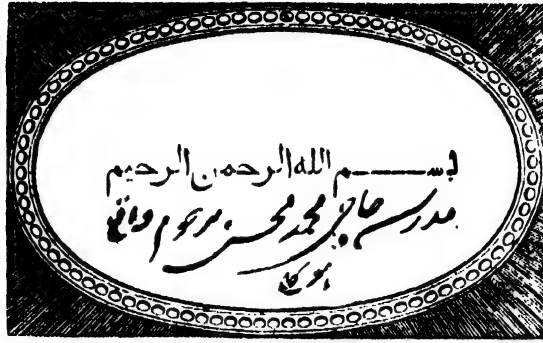 بســـــم الله الرحمن الرحيم
مدرسہ حاجی محمد محسن مرحوم واقع
ہوگلی